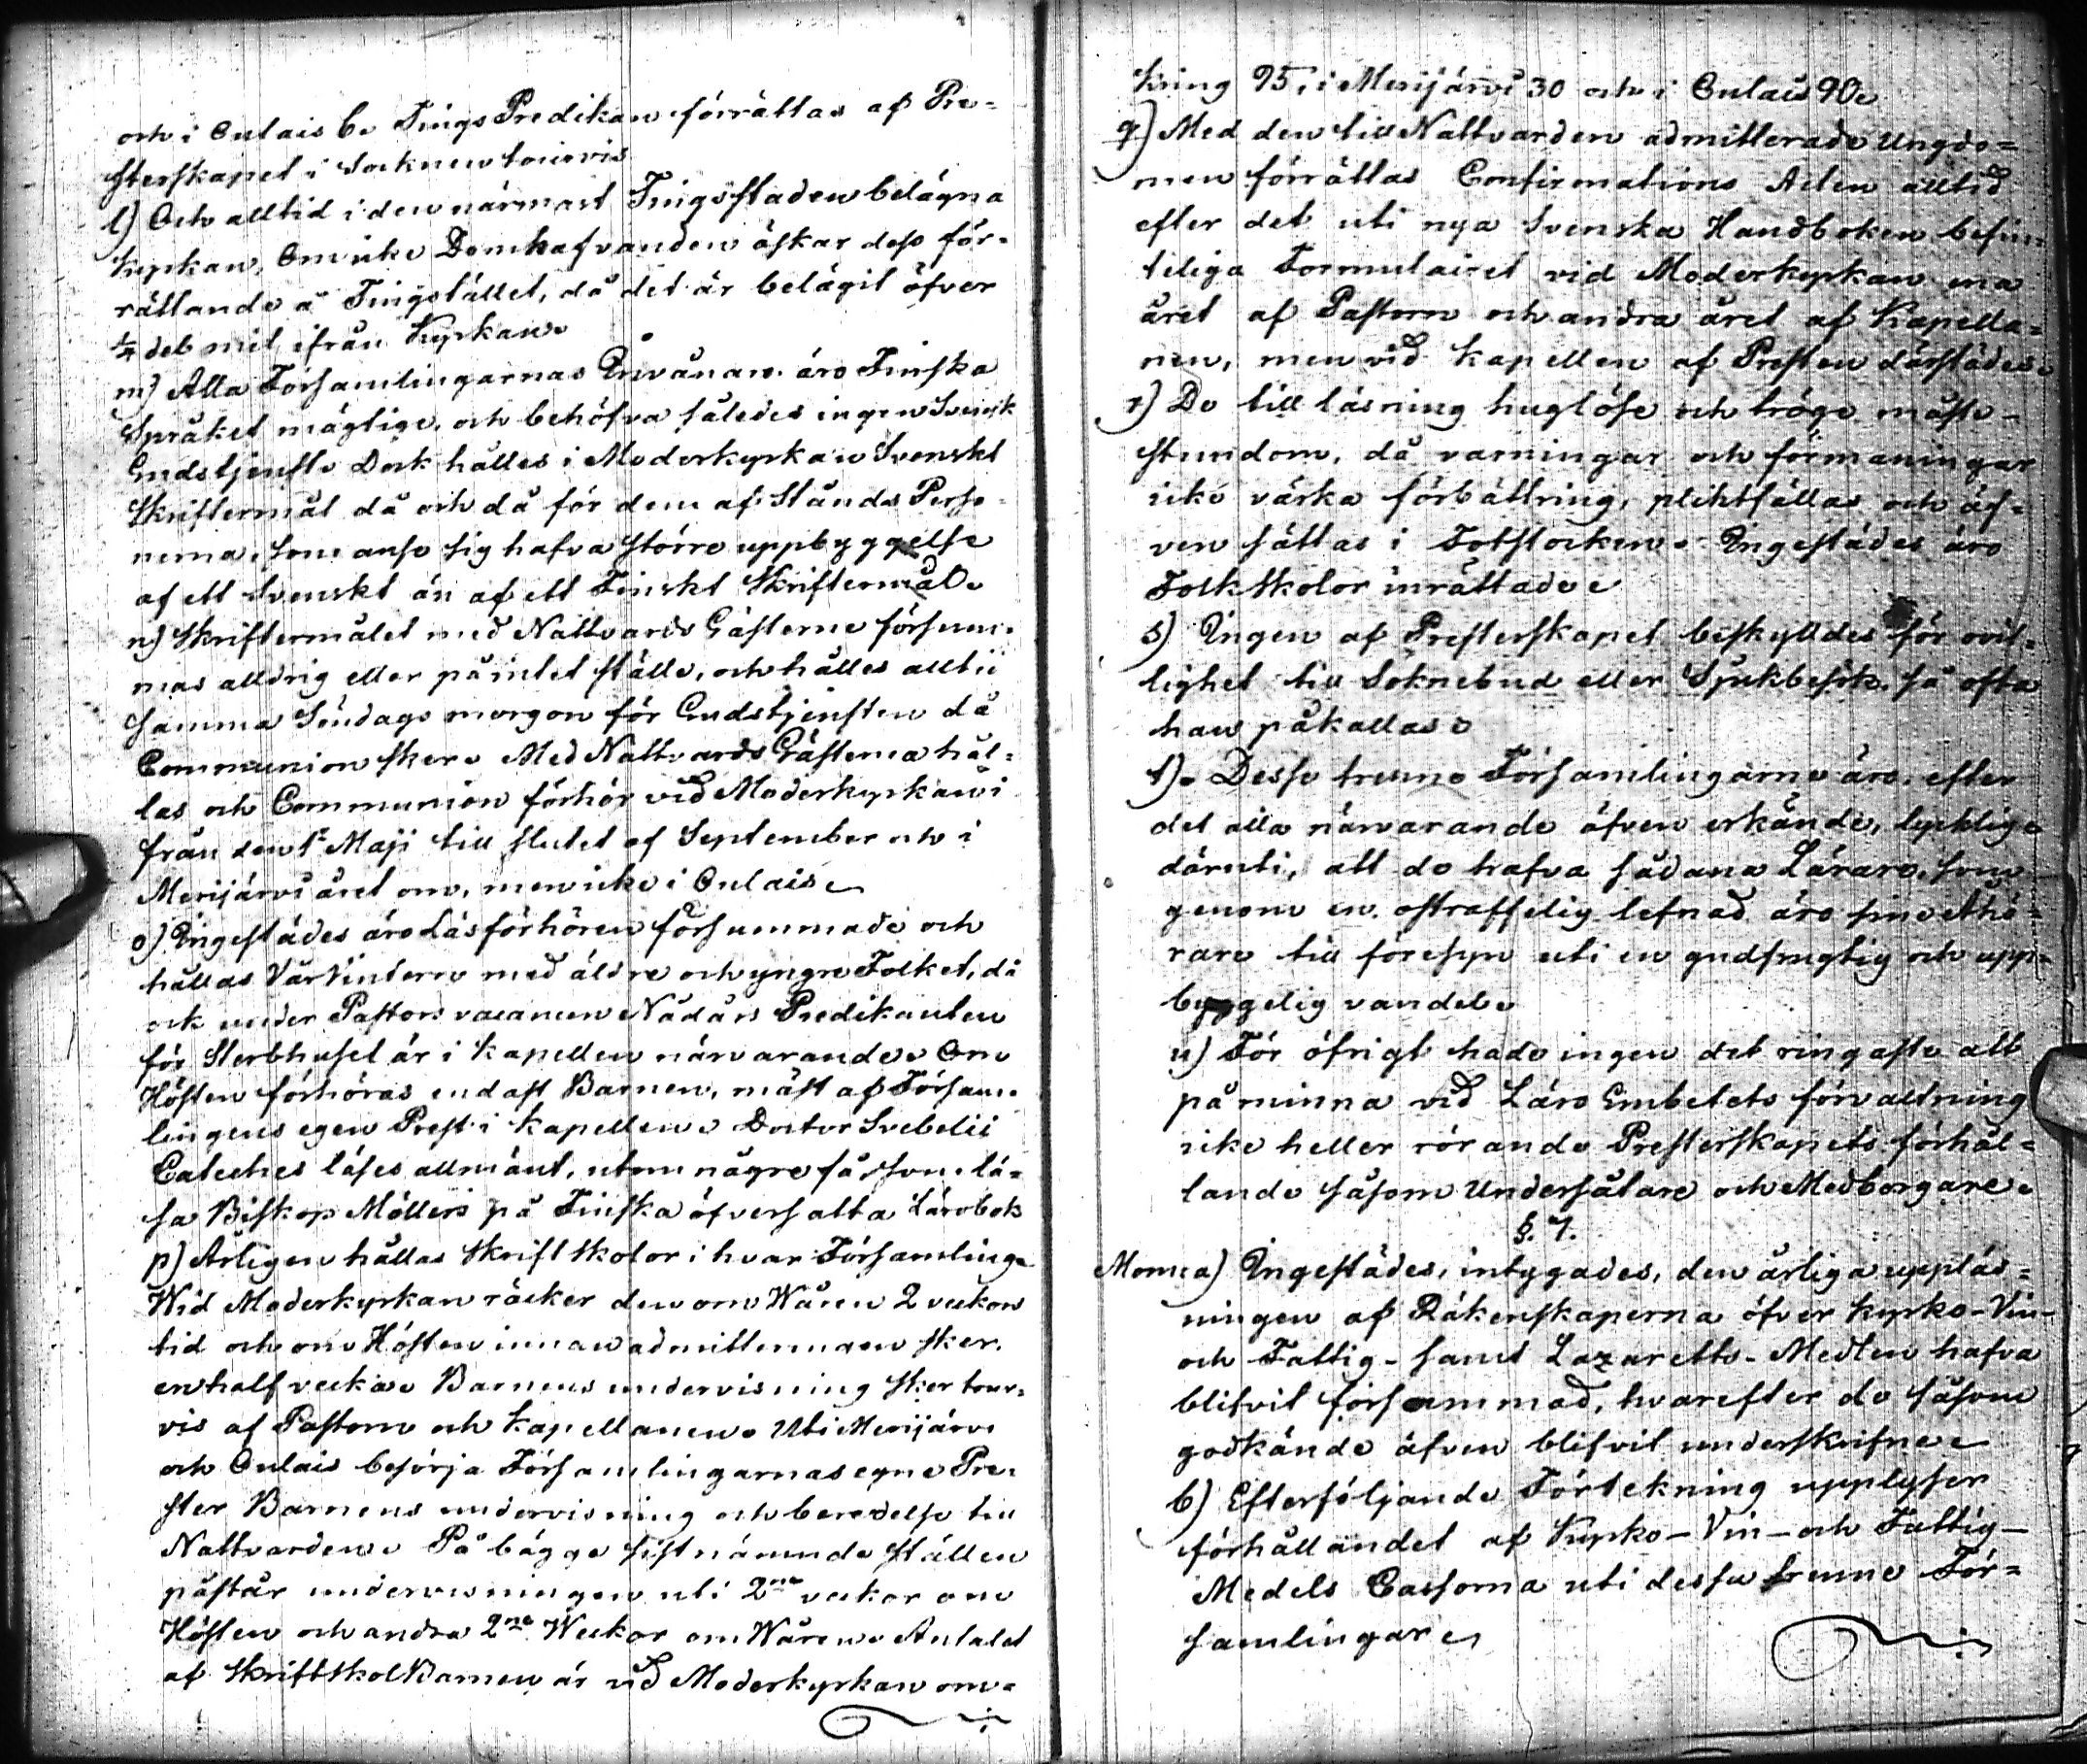 och i Oulais 6. Tings Predikan förrättas af Pre=
sterskapet i Socknen tourvis
l) Och alltid i den närmast Tingsstaden belägna
Kyrkan, Om icke Domhafvanden äskar dess för-
rättande å Tingstället, då det är belägit öfver
1/4 dels mil ifrån Kyrkan.
m) Alla Församlingarnas Invånare äro Finska
Språket mägtige, och behöfva således ingen Svensk
Gudstjenst. Dock hålles i Moderkyrkan Svenskt
Skriftermål då och då för dem af Stånds Perso-
nerna, som anse sig hafva större uppbyggelse
af ett Svenskt än af ett Finskt Skriftermål.
n) Skriftermålet med Nattvards Gästerne försum-
mas alldrig eller på intet ställe, och hålles alltid
samma Söndags morgon för Gudstjensten då
Communion sker. Med Nattvards Gästerna hål-
las och Communion förhör vid Moderkyrkan i
från den 1e Maji till slutet af September och i
Merijärvi året om, men icke i Oulais.
o) Ingestädes äro Läsförhören försummade och
hållas Vårvintern med äldre och yngre Folket, då
ock under Pastors vacancen Nådårs Predikanten
för Sterbhuset är i Kapellen närvarande. Om
Hösten förhöras endast Barnen, mäst af Försam-
lingens egen Prest i Kapellen. Doctor Svebelii
Cateches läses allmänt, utom någre få, som lä-
sa Biskop Möllers på Finska öfversatta Lärobok
p) Årligen hållas Skriftskolor i hvar Församling.
Wid Moderkyrkan räcker den om Wåren 2 veckors
tid och om Hösten innan admitteringen sker,
en half vecka. Barnens undervisning sker tour-
vis af Pastorn och Kapellanen. Uti Merijärvi
och Oulais besörja Församlingarnas egne Pre-
ster Barnens undervisning och beredelse till
Nattvarden. På bägge sistnämnde ställen
påstår undervisningen uti 2ne veckor om
Hösten och andra 2ne Weckor om Wåren. Antalet
af Skriftskol Barnen är vid Moderkyrkan om-
kring 95, i Merijärvi 30 och i Oulais 90.
q) Med den till Nattvarden admitterade Ungdo=
men förrättas Confirmations Acten alltid
efter det uti nya Svenska Handboken befin-
teliga Formulairet vid Moderkyrkan ena
året af Pastorn och andra året af Kapella=
nen, men vid kapellen af Presten därstädes.
r) De till läsning huglöse och tröge måste
stundom, då varningar och förmaningar
icke värka förbättring, plichtfällas och äf-
ven sättas i Fotstocken. Ingestädes äro
Folkskolor inrättade.
s) Ingen af Presterskapet beskylldes för ovil-
lighet till Söknebud eller Sjukbesök, så ofta
han påkallas.
t). Desse trenne Församlingarne äro, efter
det alla närvarande äfven erkände, lycklige
däruti, att de hafva sådana Lärare, som
genom en ostraffelig lefnad äro sine Åhö-
rare till föresyn uti en gudfrugtig och upp=
byggelig vandel.
u) För öfrigt hade ingen det ringaste att
påminna vid Läro Embetets förvaltning
icke heller rörande Presterskapets förhål=
lande såsom Undersåtare och Medborgare.
§. 7.
Mom: a) Ingestädes, intygades, den årliga uppläs=
ningen af Räkenskaperna öfver Kyrko-Vin-
och Fattig- samt Lazaretts-Medlen hafva
blifvit försummad, hvarefter de såsom
godkände äfven blifvit underskrifne.
b) Efterföljande Förtekning upplyser
förhållandet af Kyrko-Vin- och Fattig-
Medels Cassorna uti dessa trenne För=
samlingar.